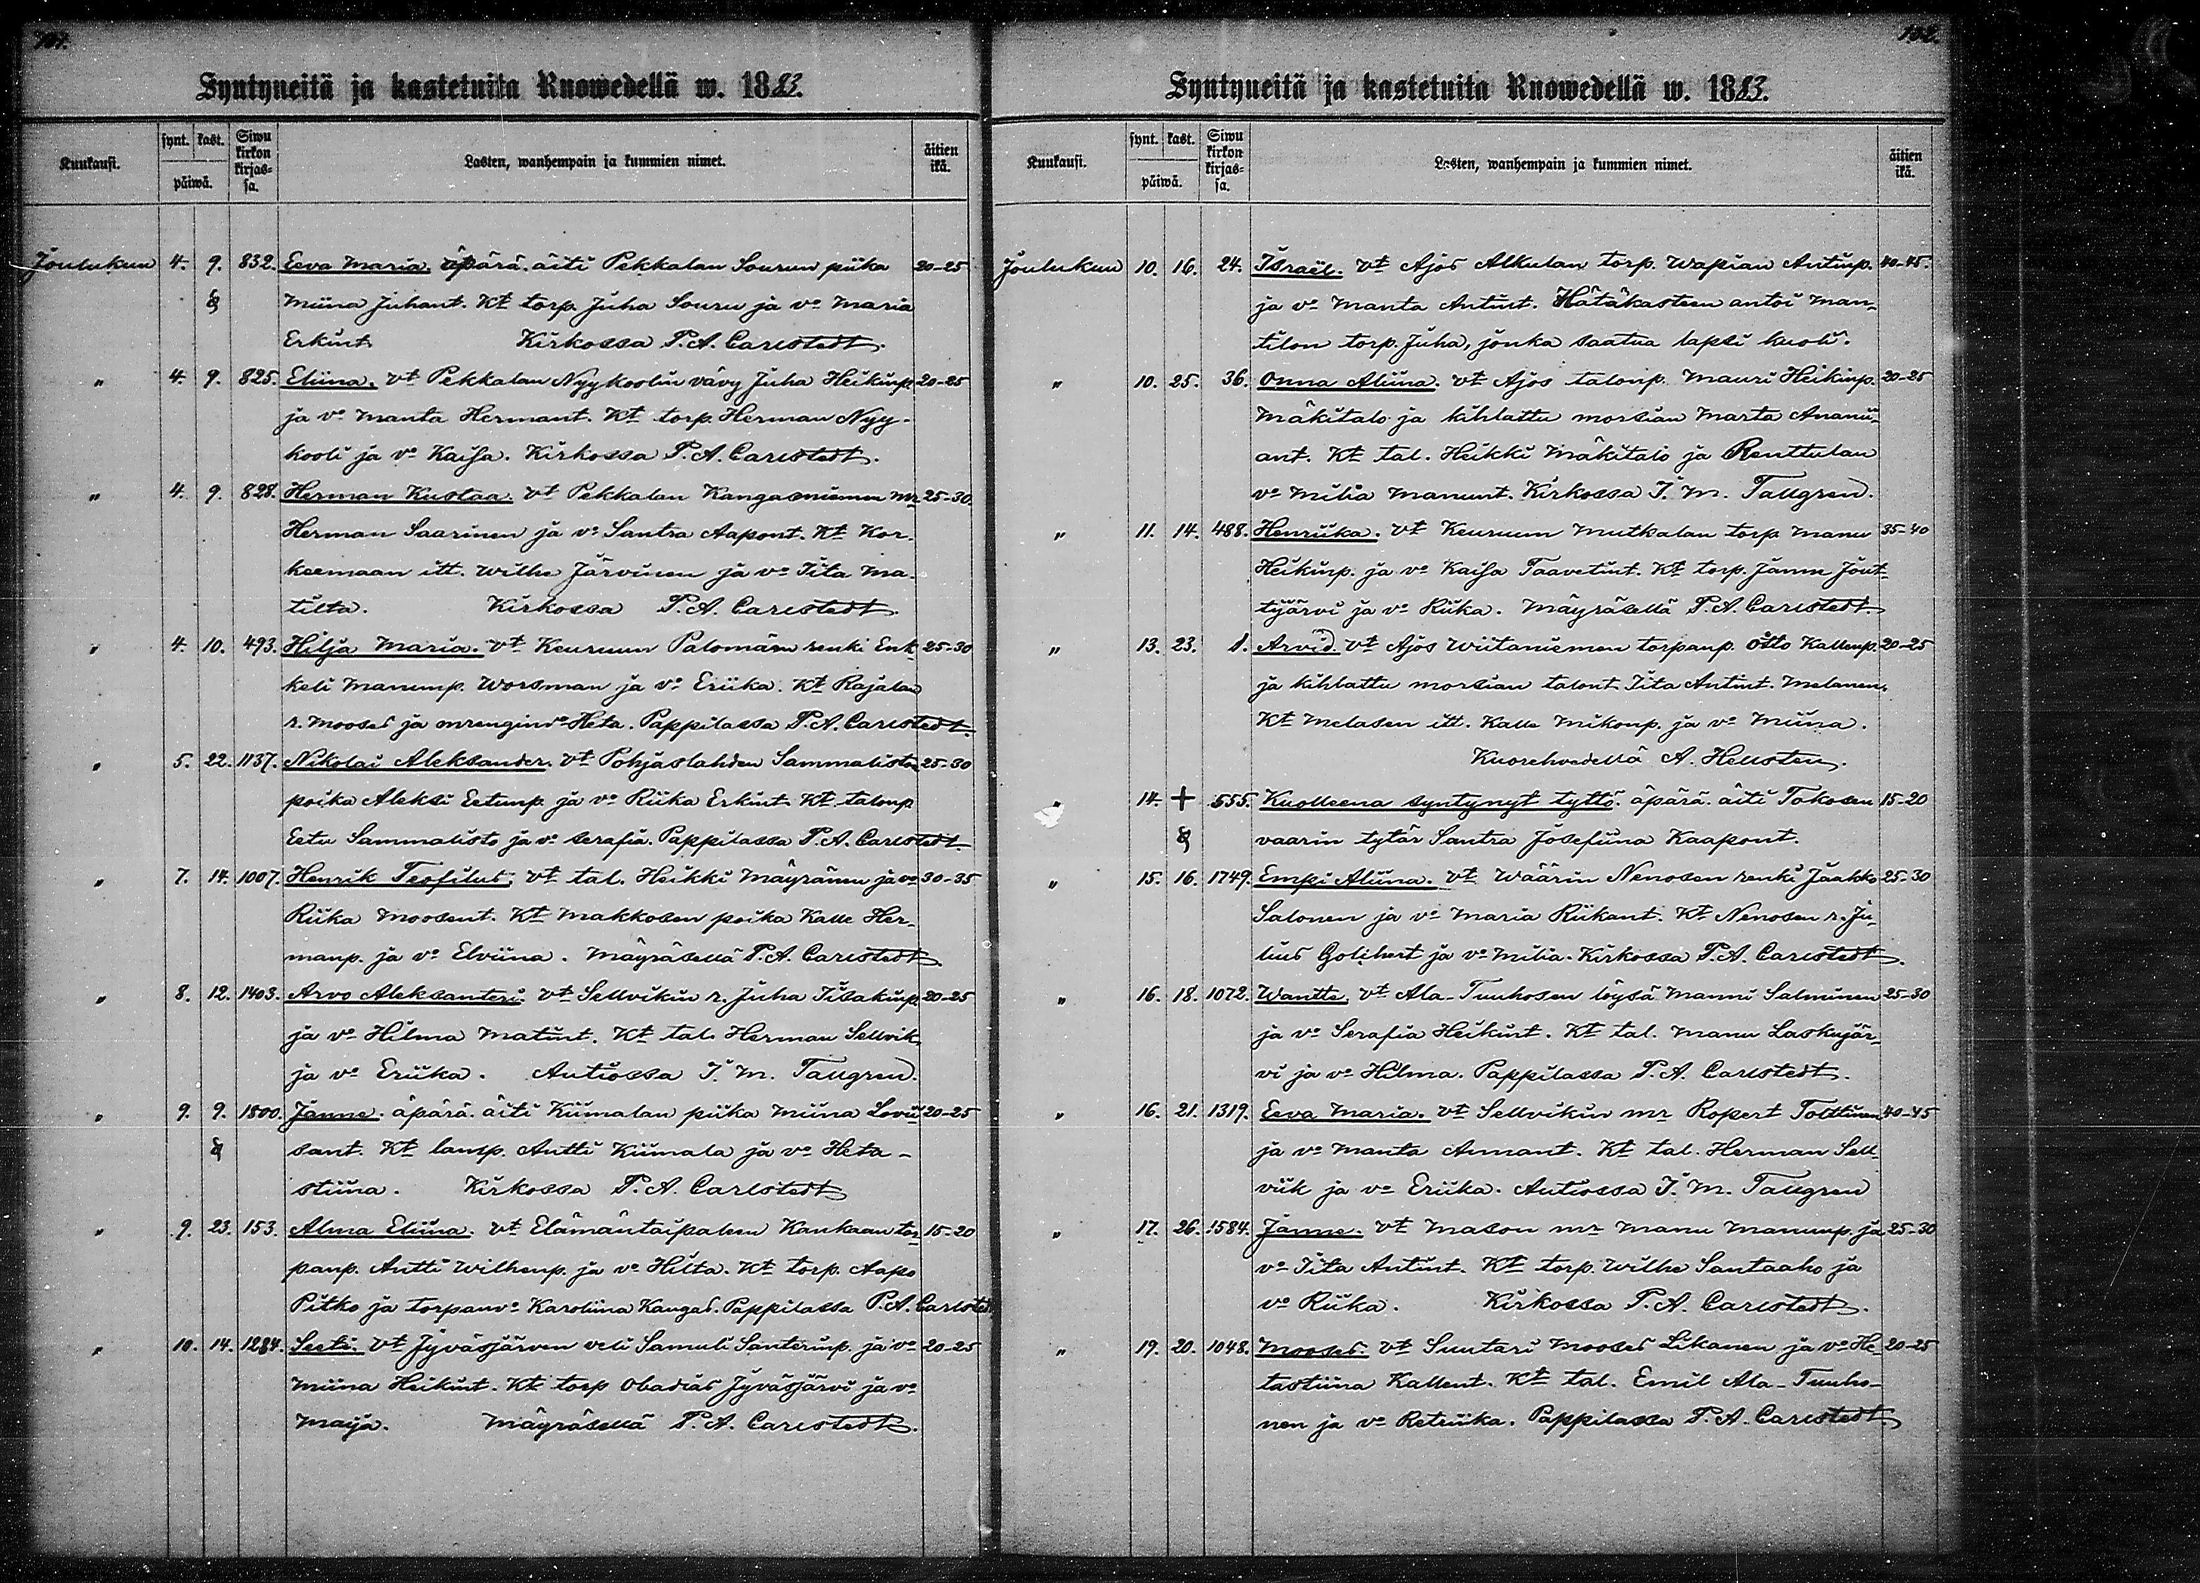 101.
Syntyneitä ja kastetuita Ruowedellä w. 1883.
Kuukausi. synt. kast. päiwä. Siwu kirkon kirjassa. Lasten, wanhempain ja kummien nimet. äitien ikä.
Joulukun 4. 9. 832. Eeva Maria. äpärä. äiti Pekkalan Sourun piika 20-25
Miina Juhant. Kt torp. Juha Souru ja vo Maria
Erkint. Kirkossa P. A. Carlstedt.
" 4. 9. 825. Eliina. vt Pekkalan Nyykoolin vävy Juha Heikinp. 20-25
ja vo Manta Hermant. Kt torp. Herman Nyy-
kooli ja vo Kaisa. Kirkossa P. A. Carlstedt.
" 4. 9. 828. Herman Kustaa. vt Pekkalan Kangasniemen mr 25-30.
Herman Saarinen ja vo Santra Aapont. Kt Kor-
keemaan itt. Wilhe Järvinen ja vo Iita Ma-
tilta. Kirkossa P. A. Carlstedt.
" 4. 10. 493. Hilja Maria. vt Keuruun Palomäen renki Enk- 25-30
keli Manunp. Worsman ja vo Eriika. Kt Rajalan
r. Mooses ja mrenginvo Heta. Pappilassa P. A. Carlstedt.
" 5. 22. 1137. Nikolai Aleksander. vt Pohjaslahden Sammaliston 25-30
poika Aleksi Eetunp. ja vo Riika Erkint. Kt talonp.
Eetu Sammalisto ja vo Serafia. Pappilassa P. A. Carlstedt.
" 7. 14. 1007. Henrik Teofilus. vt tal. Heikki Mäyränen ja vo 30-35
Riika Moosent. Kt Makkosen poika Kalle Her-
manp. ja vo Elviina. Mäyräsellä P. A. Carlstedt.
" 8. 12. 1403. Arvo Aleksanteri. vt Sellvikin r. Juha Iisakinp. 20-25
ja vo Hilma Matint. Kt tal. Herman Sellvik
ja vo Eriika. Autiossa I. M. Tallgren.
" 9. 9. 1800. Janne. äpärä. äiti Kiimalan piika Miina Lovii- 20-25
sant. Kt lamp. Antti Kiimala ja vo Heta-
stiina. Kirkossa P. A. Carlstedt
" 9. 23. 153. Alma Eliina. vt Elämäntaipaleen Kankaan tor- 15-20
panp. Antti Wilhenp. ja vo Hilta. Kt torp. Aapo
Pitko ja torpanvo Karoliina Kangas. Pappilassa P. A. Carlstedt
" 10. 14. 1284. Seeti. vt Jyväsjärven veli Samuli Santerinp. ja vo 20-25
Miina Heikint. Kt torp. Obadias Jyväsjärvi ja vo
Maija. Mäyräsellä P. A. Carlstedt.
102.
Syntyneitä ja kastetuita Ruowedellä w. 1883.
Kuukausi. synt. kast. päiwä. Siwu kirkon kirjassa. Lasten, wanhempain ja kummien nimet. äitien ikä.
Joulukun 10. 16. 24. Israël. vt Ajos Alkulan torp. Wapian Antinp. 40-45.
ja vo Manta Antint. Hätäkasteen antoi Man-
tilon torp. Juha, jonka saatua lapsi kuoli.
" 10. 25. 36. Onna Aliina. vt Ajos talonp. Mauri Heikinp. 20-25
Mäkitalo ja kihlattu morsian Marta Ananii-
ant. Kt tal. Heikki Mäkitalo ja Renttulan
vo Milia Manunt. Kirkossa I. M. Tallgren.
" 11. 14. 488. Henriika. vt Keuruun Mutkalan torp. Manu 35-40
Heikinp. ja vo Kaisa Taavetint. Kt torp. Janne Jout-
tijärvi ja vo Riika. Mäyräsellä P. A. Carlstedt.
" 13. 23. 1. Arvid. vt Ajos Wiitaniemen torpanp. Otto Kallenp. 20-25
ja kihlattu morsian talont. Iita Antint. Melanen.
Kt Melasen itt. Kalle Mikonp. ja vo Miina.
Kuorehvedellä A. Hellsten.
" 14. + 555. Kuolleena syntynyt tyttö. äpärä. äiti Tokosen 15-20
vaarin tytär Santra Josefiina Kaapont.
" 15. 16. 1749. Empi Aliina. vt Wäärin Nenosen renki Jaakko 25-30
Salonen ja vo Maria Riikant. Kt Nenosen r. Ju-
lius Golihert ja vo Milia. Kirkossa P. A. Carlstedt.
" 16. 18. 1072. Wantte. vt Ala-Tuuhosen löysä Manni Salminen 25-30
ja vo Serafia Heikint. Kt tal. Manu Laskujär-
vi ja vo Hilma. Pappilassa P. A. Carlstedt.
" 16. 21. 1319. Eeva Maria. vt Sellvikin mr Ropert Tolttinen 40-45
ja vo Manta Annant. Kt tal. Herman Sell-
viik ja vo Eriika. Autiossa I. M. Tallgren
" 17. 26. 1584. Janne. vt Mason mr Manu Manunp. ja 25-30
vo Iita Antint. Kt torp. Wilhe Santaaho ja
vo Riika. Kirkossa P. A. Carlstedt.
" 19. 20. 1048. Mooses. vt Suutari Mooses Likanen ja vo He- 20-25
tastiina Kallent. Kt tal. Emil Ala-Tuuho-
nen ja vo Retriika. Pappilassa P. A. Carlstedt.